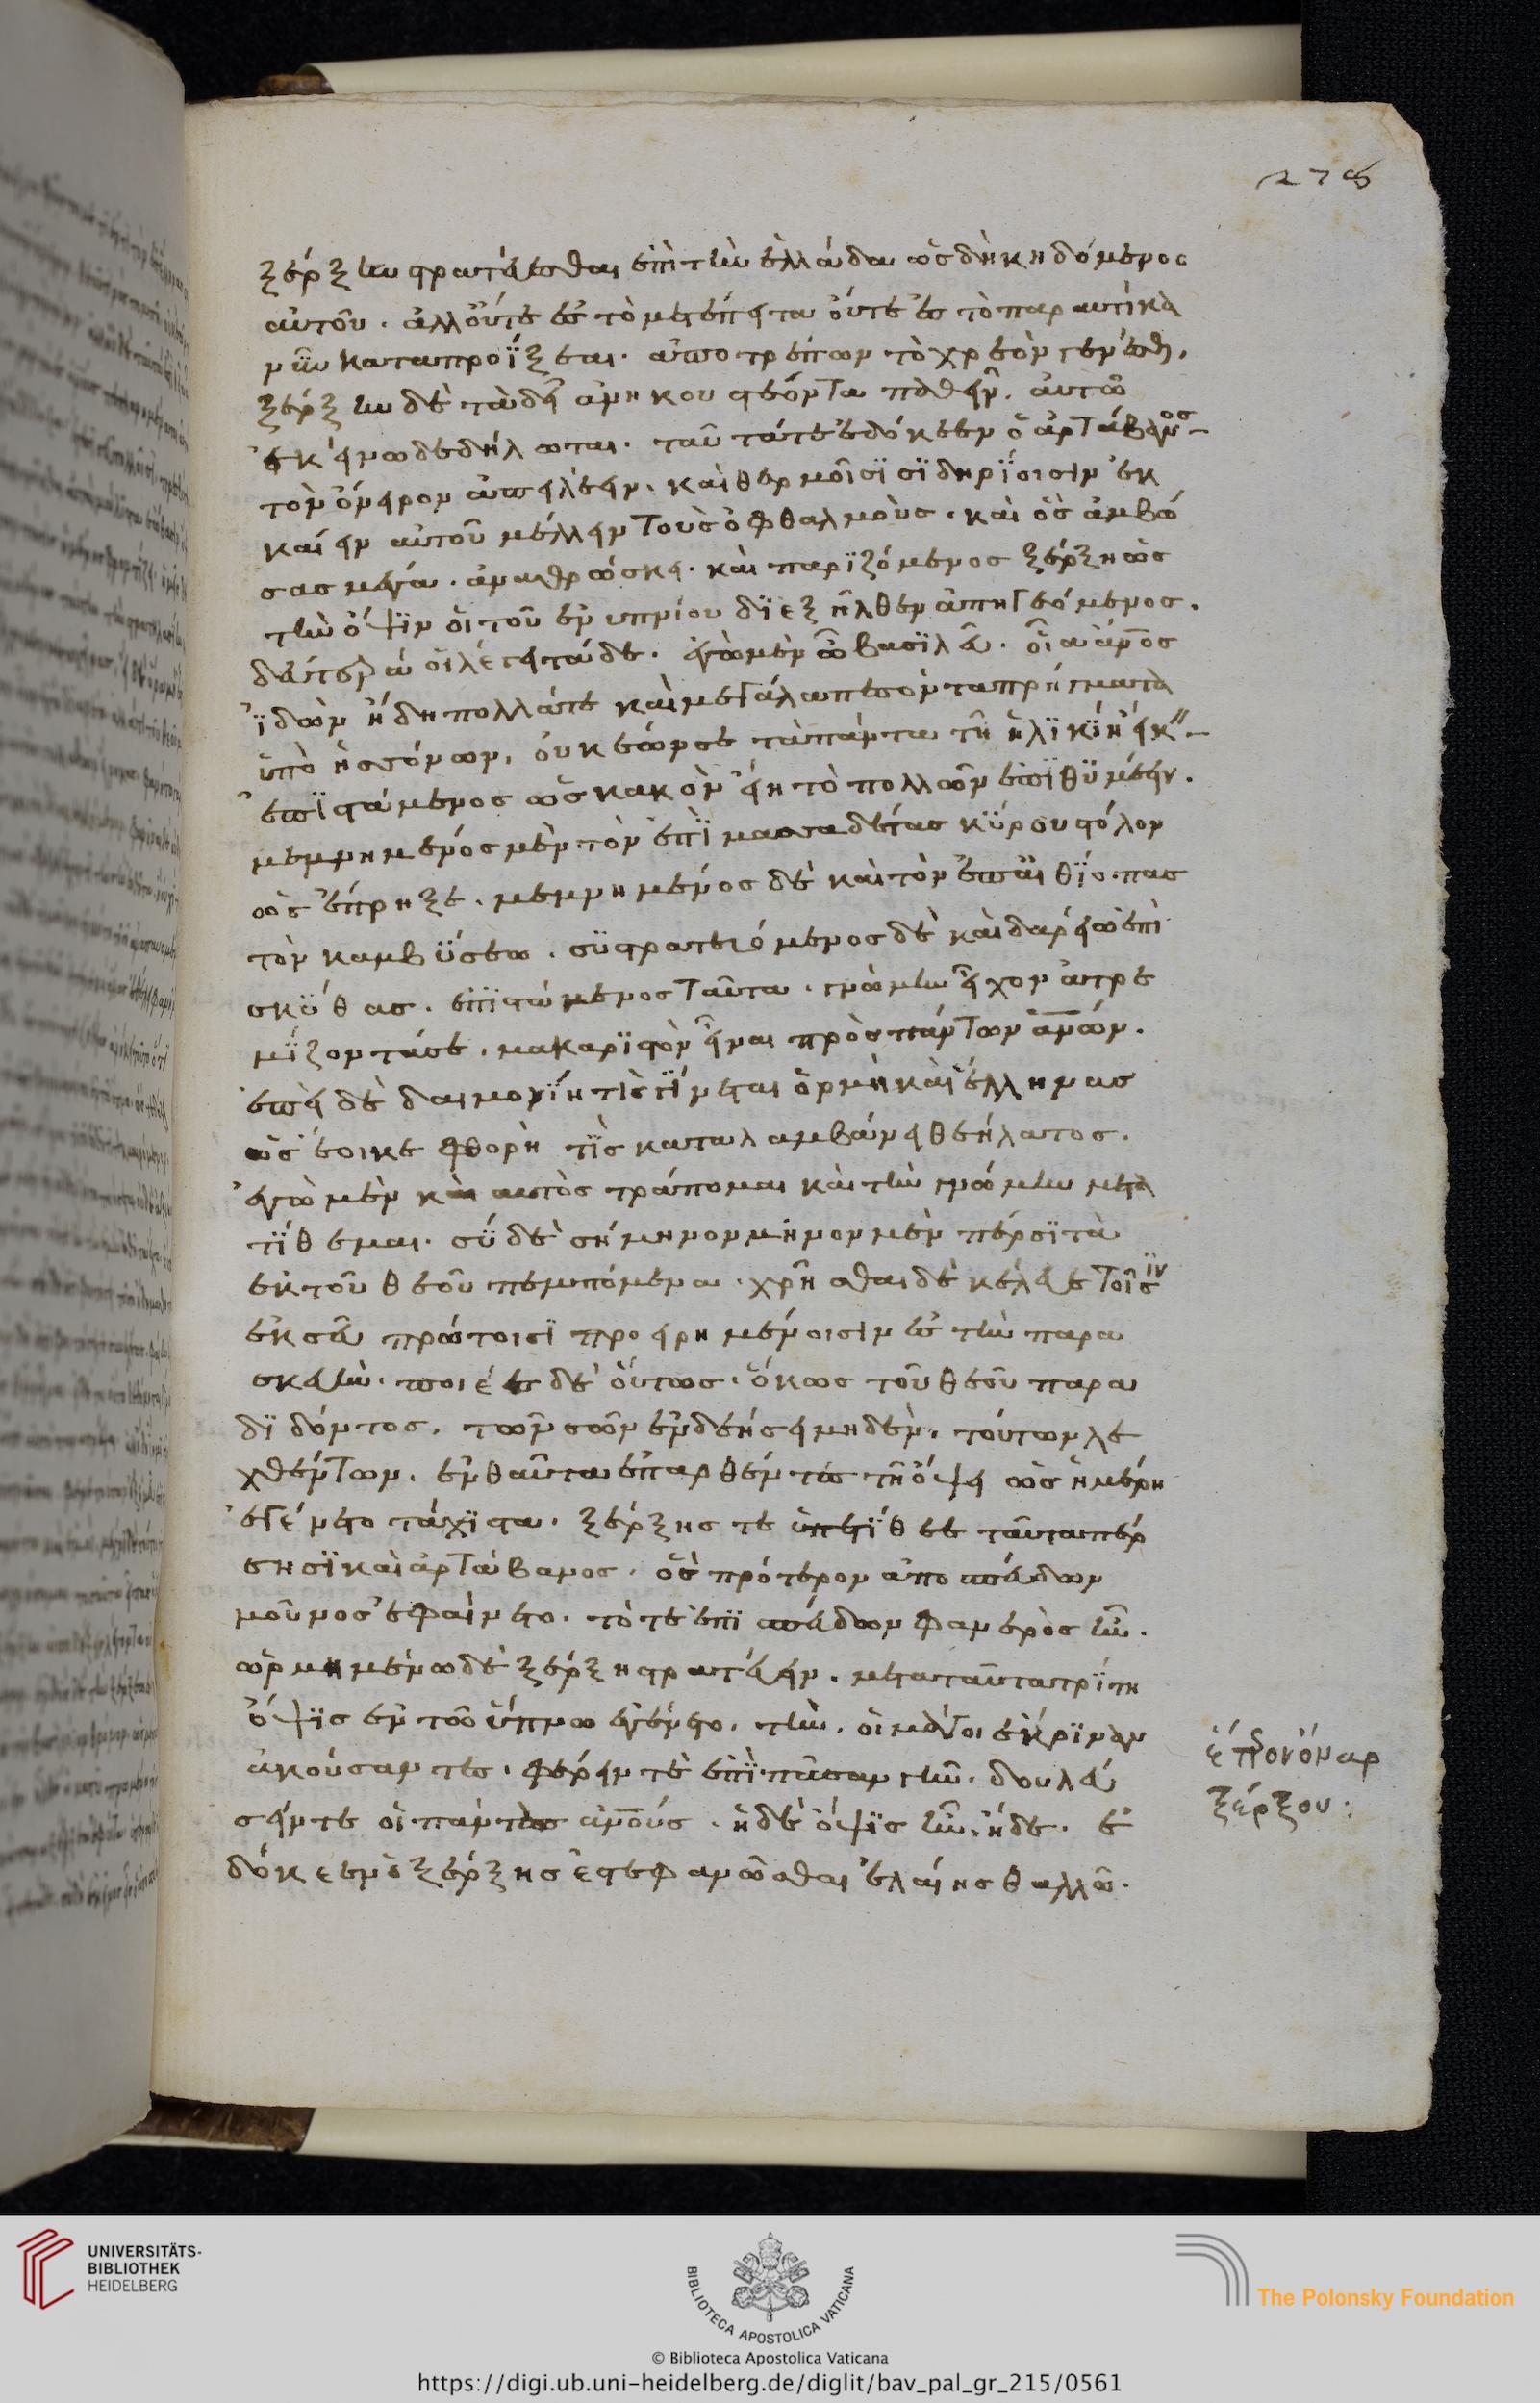 278
ξέρξην στρατεύεσθαι ἐπὶ τὴν ἑλλάδα ὡς δὴ κηδόμενος
αὐτοῦ. ἀλλ' οὔτε ἐς τὸ μετέπειτα οὔτε ἐς τὸ παραυτίκα
νῦν καταπροΐξεαι. ἀποτρέπων τὸ χρεὸν γενέσθαι.
ξέρξην δὲ τὰ δεῖ ἀνηκουστέοντα παθεῖν. αὐτῶ
ἐκείνω δεδήλωται. ταῦτά τε ἐδόκεεν ὁ ἀρτάβανος
τὸν ὄνειρον ἀπειλέειν. καὶ θερμοῖσϊ σϊδηρΐοισιν ἐκ
καίειν αὐτοῦ μέλλειν τοὺς ὀφθαλμούς. καὶ ὃς ἀμβώ
σας μέγα. ἀναθρώσκει. καὶ παρϊζόμενος ξέρξη ὡς
τὴν ὄψϊν οἱ τοῦ ἐνυπνίου δϊεξῆλθεν ἀπηγεόμενος.
δεύτερά οἱ λέγει τάδε. ἐγὼ μὲν ὦ βασϊλεῦ. οἷα ἄνος
ϊδὼν ἤδη πολλά τε καὶ μεγάλα πεσόντα πρήγματα
ὑπὸ ἡσσόνων, οὐκ ἔων σε τὰ πάντα τῆ ἡλϊκΐη εἴκειν
ἐπϊστάμενος ὡς κακὸν εἴη τὸ πολλῶν ἐπϊθϋμέειν.
μεμνημένος μὲν τὸν ἐπϊ μασσαγέτας κϋρου στόλον
ὡς ἔπρηξε. μεμνημένος δὲ καὶ τὸν ἐπ' αἰθΐοπας
τὸν καμβϋσεω. σϋστρατευόμενος δὲ καὶ δαρείω ἐπὶ
σκϋθας. ἐπϊστάμενος ταῦτα. γνώμην εἶχον ἀτρε
μΐζοντά σε. μακαρϊστὸν εἶναι πρὸς πάντων ἀνων.
ἐπεὶ δὲ δαιμονΐη τϊς γΐνεται ὁρμὴ καὶ ἕλληνας
ὡς ἔοικε φθορὴ τϊς καταλαμβάνει θεήλατος.
ἐγὼ μὲν καὶ αὐτὸς τράπομαι καὶ τὴν γνώμην μετα
τΐθεμαι. σϋ δὲ σήμηνον μὲν πέρσϊ τὰ
ἐκ τοῦ θεοῦ πεμπόμενα. χρῆσθαι δὲ κέλευε τοῖσϊν
ἐκ σεῦ πρώτοισϊ προειρημένοισιν ἐς τὴν παρα
σκευήν. ποιέε δὲ οὕτως. ὅκως τοῦ θεοῦ παρα
δϊδόντος. τῶν σῶν ἐνδεήσει μηδέν. τούτων λε
χθέντων. ἐνθαῦτα ἐπαρθέντες τῆ ὄψει ὡς ἡμέρη
ἐγένετο τάχϊστα. ξέρξης τε ὑπετΐθεε ταῦτα πέρ
σησϊ καὶ ἀρτάβανος. ὃς πρότερον ἀποσπεύδων
μοῦνος ἐφαίνετο. τότε ἐπϊσπεύδων φανερὸς ἦν.
ὡρμημένω δὲ ξέρξη στρατεύειν. μετὰ ταῦτα τρΐτη
ὄψϊς ἐν τῶ ὕπνω ἐγένετο. τὴν. οἱ μάγοι ἔκρϊναν
ἀκούσαντες. φέρειν τὲ ἐπὶ πᾶσαν γῆν. δουλεύ
σειν τε οἱ πάντας ἀνους. ἡ δὲ ὄψϊς ἦν ἥδε. ἐ
δόκεεν ὁ ξέρξης ἐστεφανῶσθαι ἐλαίης θαλλῶ.
ξέρξου:
UNIVERSITÄTS-
BIBLIOTHEK
HEIDELBERG
BIBLIOTECA APOSTOLICA VATICANA
The Polonsky Foundation
© Biblioteca Apostolica Vaticana
https://digi.ub.uni-heidelberg.de/diglit/bav_pal_gr_215/0561